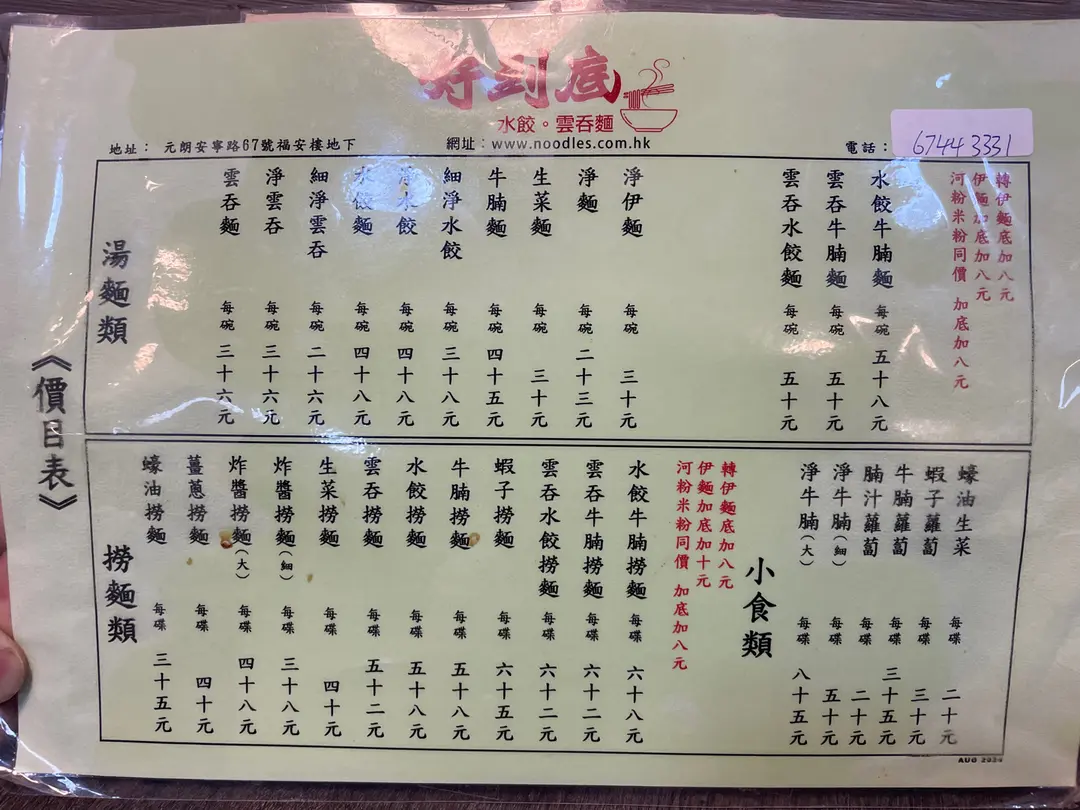 好到底
水餃。雲吞麵
地址： 元朗安寧路67號福安樓地下
網址：www.noodles.com.hk
電話：67443331
《價目表》
湯麵類
雲吞麵 每碗 三十六元
淨雲吞 每碗 三十六元
細淨雲吞 每碗 二十六元
水餃麵 每碗 四十八元
淨水餃 每碗 四十八元
細淨水餃 每碗 三十八元
牛腩麵 每碗 四十五元
生菜麵 每碗 三十元
淨麵 每碗 二十三元
淨伊麵 每碗 三十元
雲吞水餃麵 每碗 五十元
雲吞牛腩麵 每碗 五十元
水餃牛腩麵 每碗 五十八元
轉伊麵底加八元
伊麵加底加八元
河粉米粉同價 加底加八元
撈麵類
蠔油撈麵 每碟 三十五元
薑蔥撈麵 每碟 四十元
炸醬撈麵（大） 每碟 四十八元
炸醬撈麵（細） 每碟 三十八元
生菜撈麵 每碟 四十元
雲吞撈麵 每碟 五十二元
水餃撈麵 每碟 五十八元
牛腩撈麵 每碟 五十八元
蝦子撈麵 每碟 六十五元
雲吞水餃撈麵 每碟 六十二元
雲吞牛腩撈麵 每碟 六十二元
水餃牛腩撈麵 每碟 六十八元
轉伊麵底加八元
伊麵加底加十元
河粉米粉同價 加底加八元
小食類
淨牛腩（大） 每碟 八十五元
淨牛腩（細） 每碟 五十元
腩汁蘿蔔 每碟 二十元
牛腩蘿蔔 每碟 三十五元
蝦子蘿蔔 每碟 三十元
蠔油生菜 每碟 二十元
AUG 2024